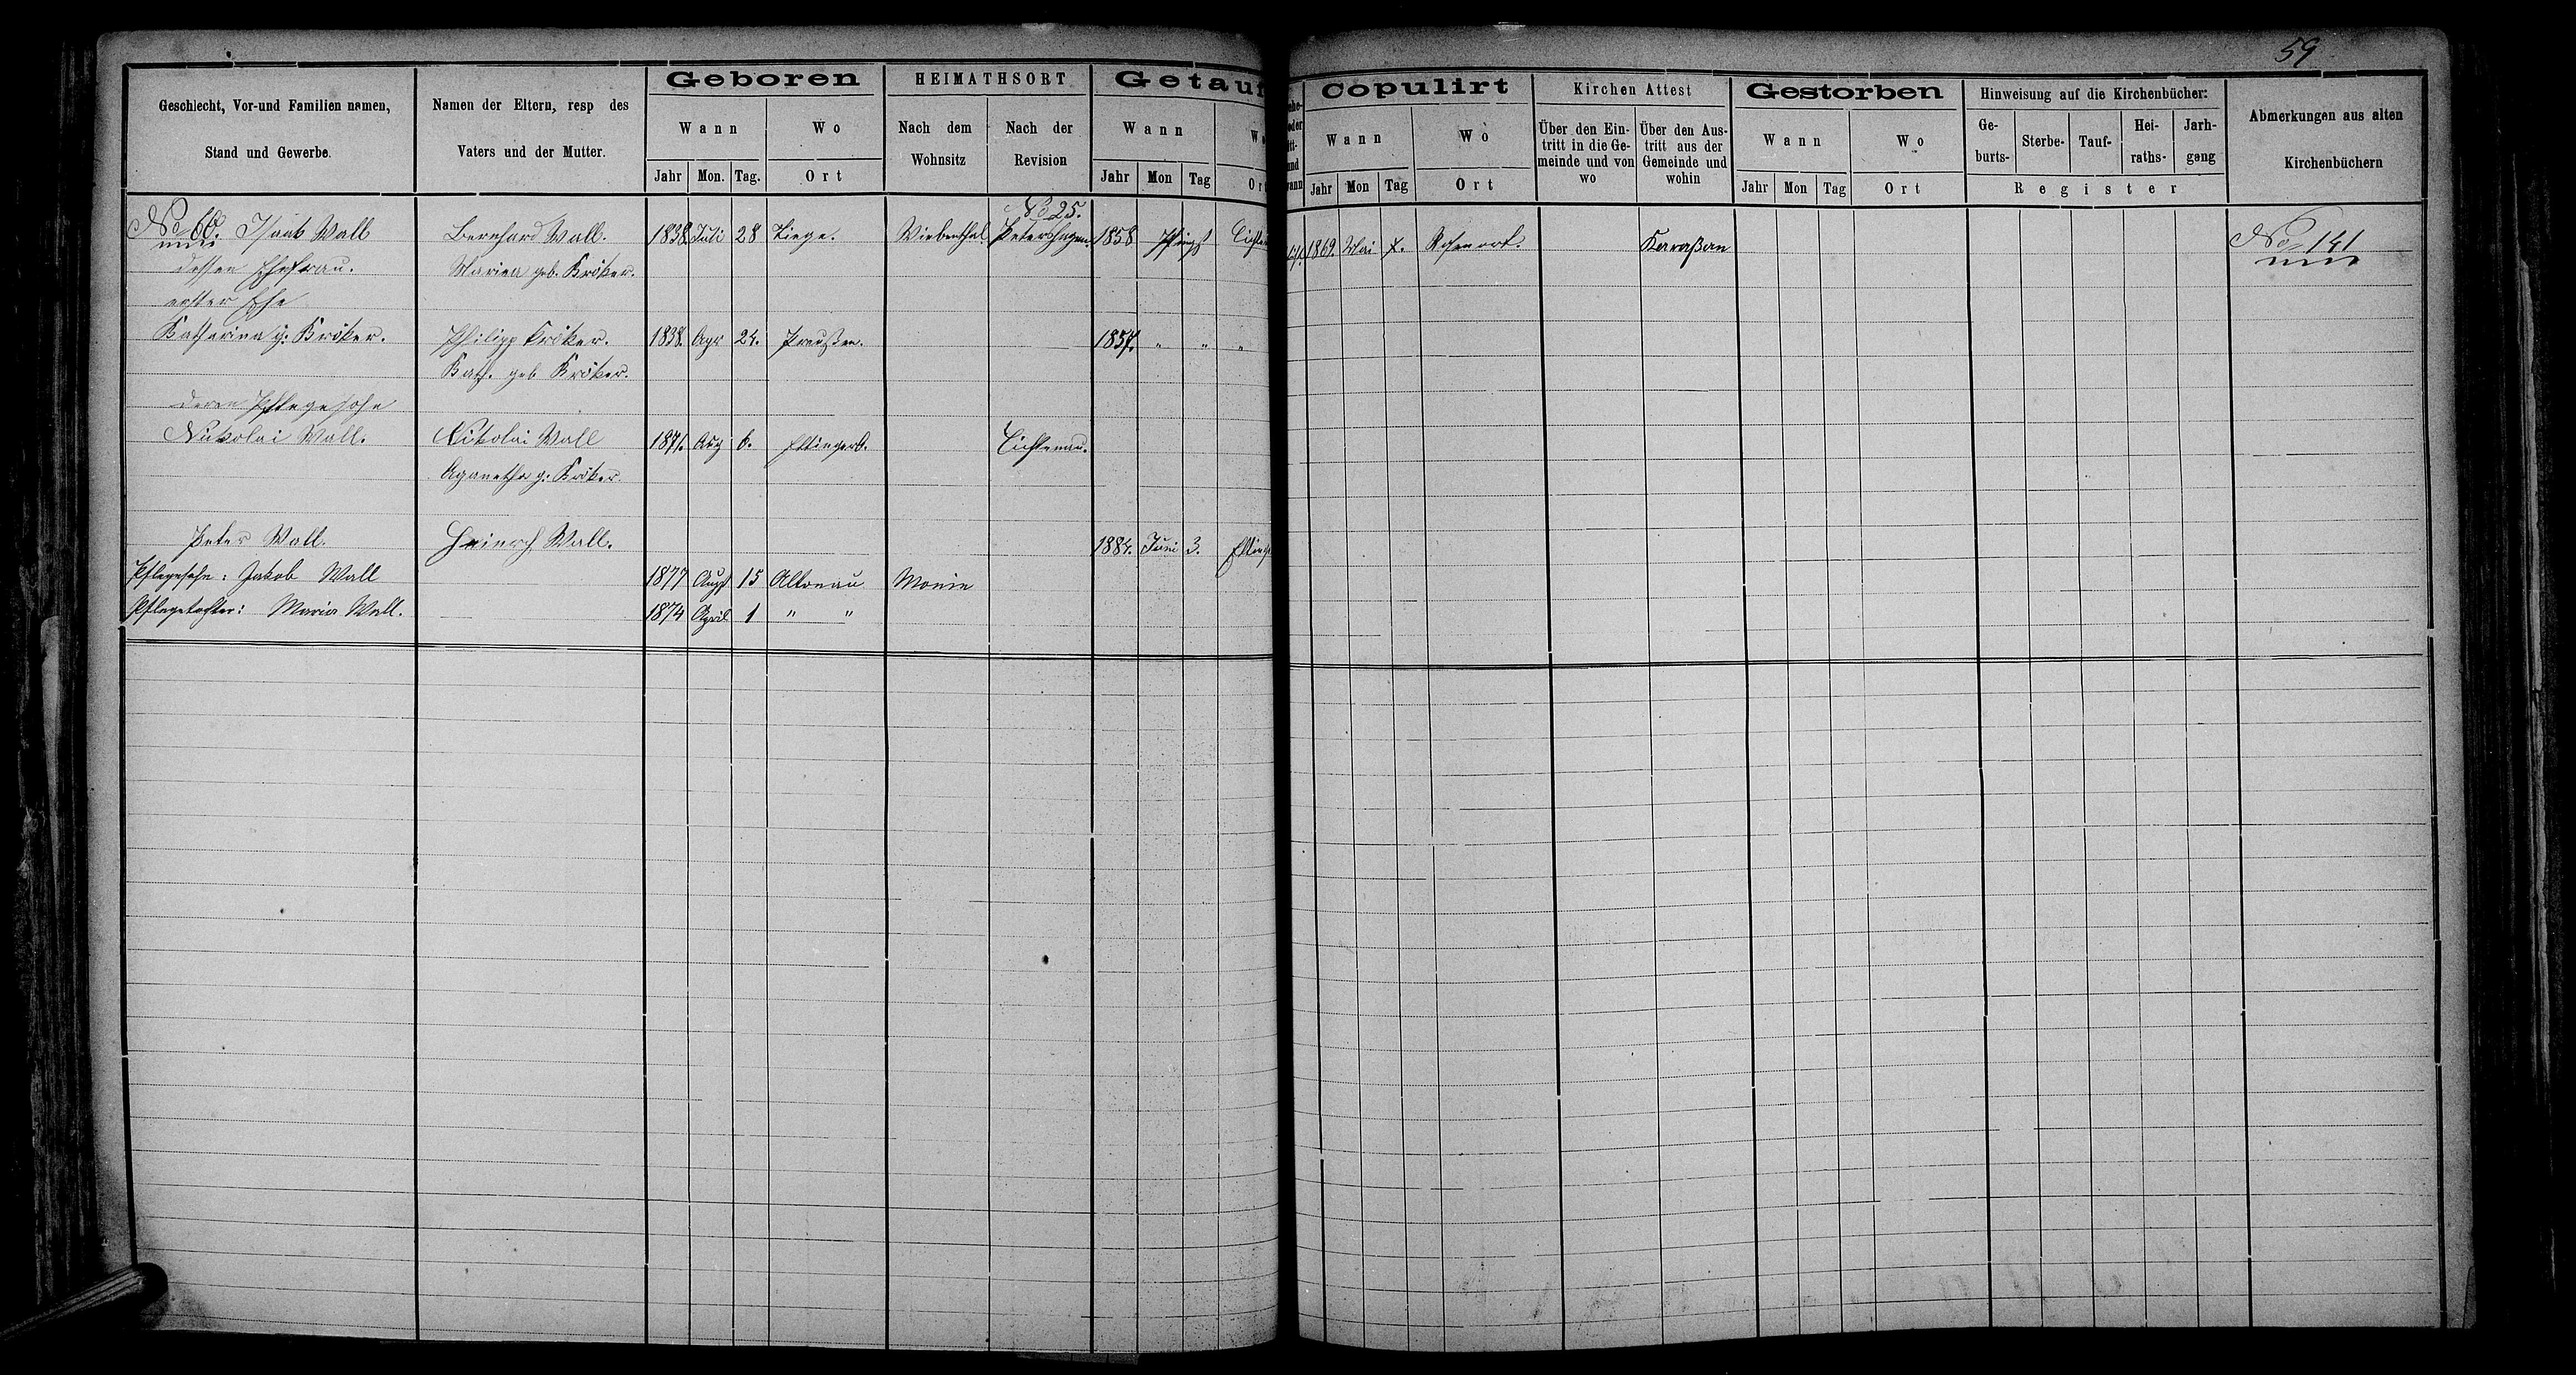 59
Geschlecht, Vor-und Familien namen,
Stand und Gewerbe.
Namen der Eltern, resp des
Vaters und der Mutter.
Geboren
Wann
Wo
Jahr Mon. Tag. Ort
HEIMATHSORT
Nach dem
Wohnsitz
Nach der
Revision
Getauf
Wann
Jahr Mon Tag Ort
Copulirt
Wann
Wo
Jahr Mon Tag Ort
Kirchen Attest
Über den Ein-
tritt in die Ge-
meinde und von
wo
Über den Aus-
tritt aus der
Gemeinde und
wohin
Gestorben
Wann
Wo
Jahr Mon Tag Ort
Hinweisung auf die Kirchenbücher:
Ge-
burts-
Sterbe-
Tauf-
Hei-
raths-
Jarh-
gang
Register
Abmerkungen aus alten
Kirchenbüchern
No 25.
No 60. Isaak Wall Bernhard Wall. 1838. Juli 28 Tiege. Wiebenthal Petershagen. 1858 Pfingst 1869. Mai Rosenort. Karaßan No 141
dessen Ehefrau. Maria geb. Kröker.
erster Ehe
Katharina g: Kröker. Philipp Kröker. 1838. Apr 24. Preußen. 1857. " " "
Kath. geb Kröker.
deren Pflegesohn
Nikolai Wall. Nikolai Wall 1871. Aug 6. Ettingerb. Lichtenau.
Aganetha g: Kröker.
Peter Wall. Heinrich Wall. 1884. Juni 3.
Pflegesohn: Jakob Wall 1877 Augst 15 Altonau Monin
Pflegetochter: Maria Wall. 1874 April 1 " "